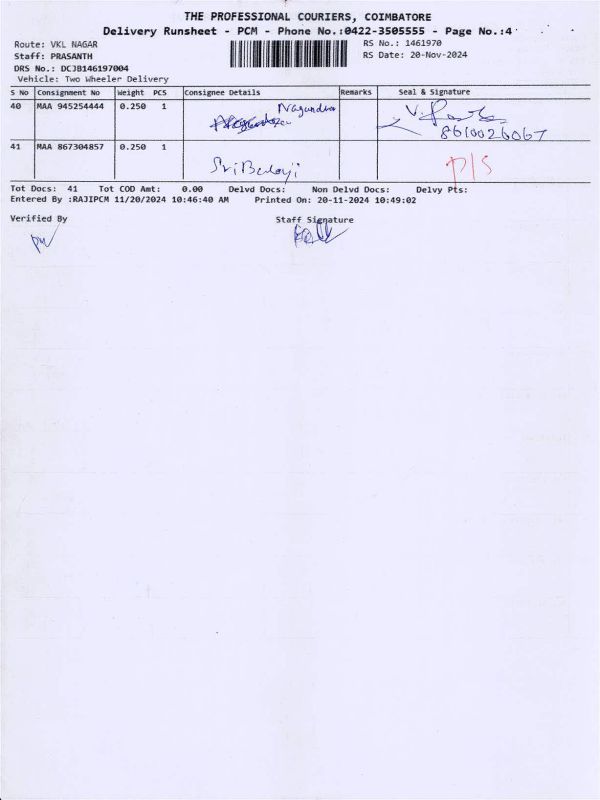 THE PROFESSIONAL COURIERS, COIMBATORE
Delivery Runsheet - PCM - Phone No.:0422-3505555 - Page No.:4
Route: VKL NAGAR
RS No.: 1461970
Staff: PRASANTH
RS Date: 20-Nov-2024
DRS No.: DCJB146197004
Vehicle: Two Wheeler Delivery
S No Consignment No Weight PCS Consignee Details Remarks Seal & Signature
40 MAA 945254444 0.250 1 Nagendra
8610026067
41 MAA 867304857 0.250 1
Sri Balaji P/S
Tot Docs: 41 Tot COD Amt: 0.00 Delvd Docs: Non Delvd Docs: Delvy Pts:
Entered By :RAJIPCM 11/20/2024 10:46:40 AM Printed On: 20-11-2024 10:49:02
Verified By Staff Signature